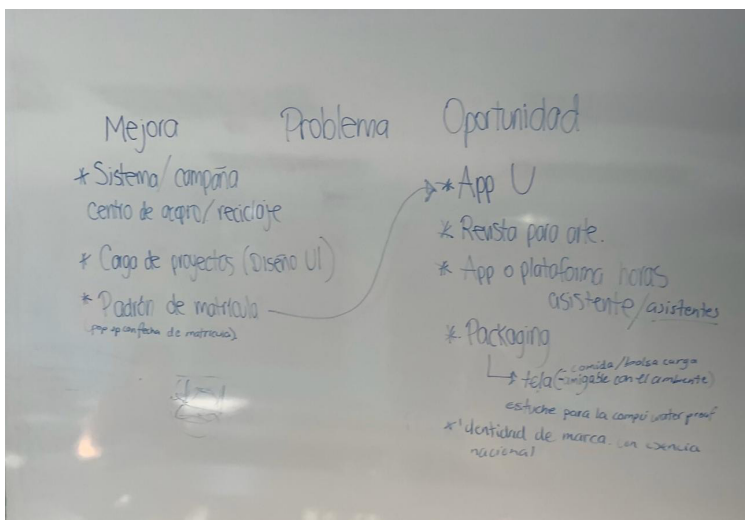 Mejora
* Sistema/campaña
centro de acopio/reciclaje
* Carga de proyectos (Diseño UI)
* Padrón de matrícula
(pop up con fecha de matrícula)
Problema
Oportunidad
* App U
* Revista para arte.
* App o plataforma horas
asistente/asistentes
* Packaging
- comida/bolsa carga
tela (-amigable con el ambiente)
estuche para la compu water proof
* Identidad de marca con esencia
nacional